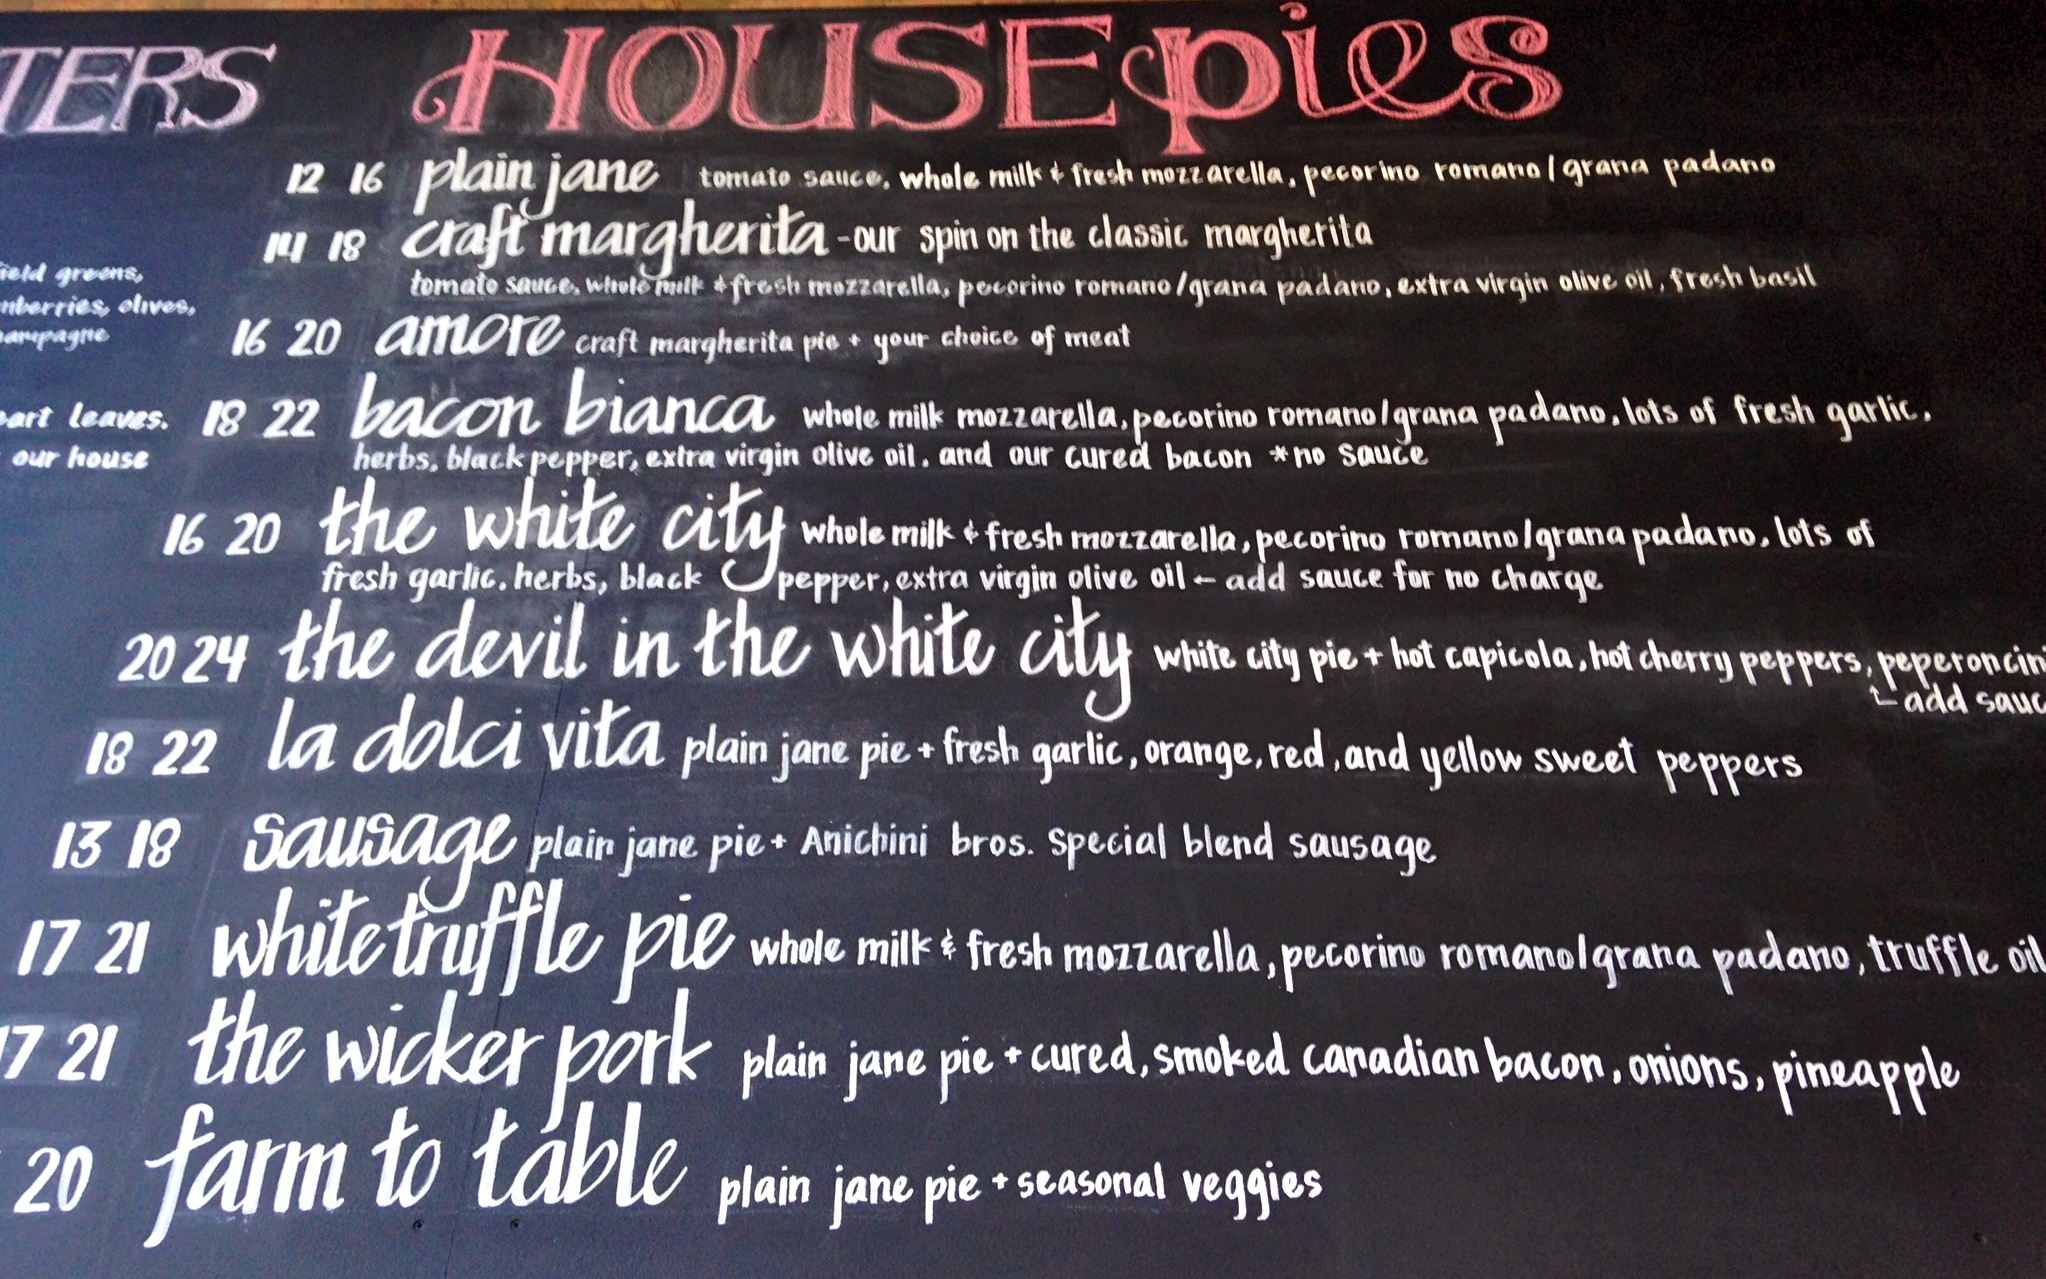 TERS
HOUSE pies
12 16 plain jane tomato sauce, whole milk & fresh mozzarella, pecorino romano/grana padano
14 18 craft margherita -our spin on the classic margherita
tomato sauce, whole milk & fresh mozzarella, pecorino romano/grana padano, extra virgin olive oil, fresh basil
greens,
olives,
16 20 amore craft margherita pie + your choice of meat
leaves.
our house
18 22 bacon bianca whole milk mozzarella, pecorino romano/grana padano, lots of fresh garlic,
herbs, black pepper, extra virgin olive oil, and our cured bacon *no sauce
16 20 the white city whole milk & fresh mozzarella, pecorino romano/grana padano, lots of
fresh garlic, herbs, black pepper, extra virgin olive oil ← add sauce for no charge
20 24 the devil in the white city white city pie + hot capicola, hot cherry peppers, peperoncini
add sauc
18 22 la dolci vita plain jane pie + fresh garlic, orange, red, and yellow sweet peppers
13 18 sausage plain jane pie + Anichini bros. special blend sausage
17 21 white truffle pie whole milk & fresh mozzarella, pecorino romano/grana padano, truffle oil
17 21 the wicker pork plain jane pie + cured, smoked canadian bacon, onions, pineapple
20 farm to table plain jane pie + seasonal veggies